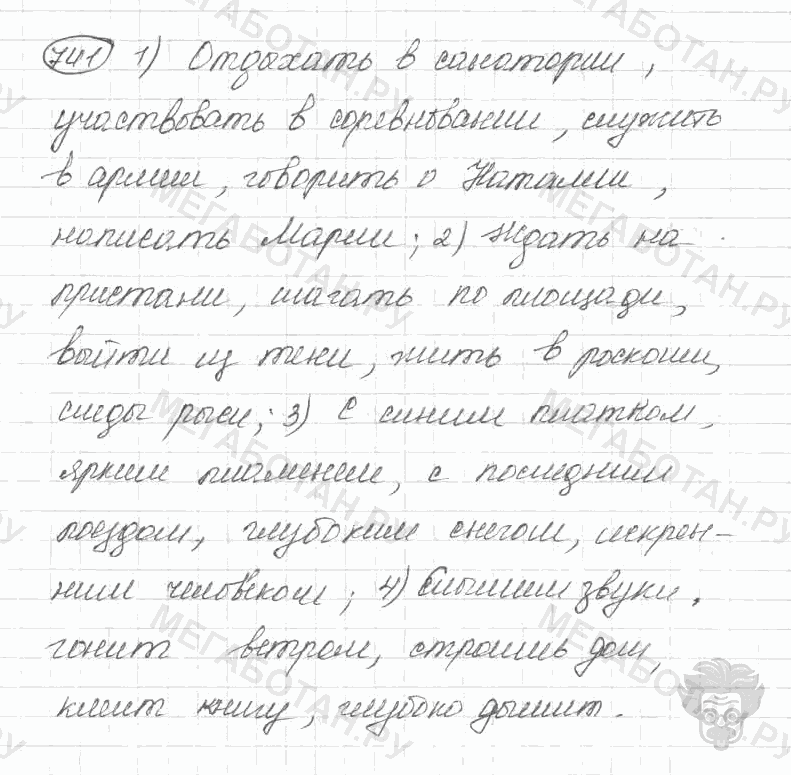 741 1) Отдыхать в санатории,
участвовать в соревновании, служить
в армии, говорить о Наталии,
написать Марии; 2) Ждать на
пристани, шагать по площади,
выйти из тени, жить в роскоши,
следы рыси; 3) С синим платком,
ярким пламенем, с последним
поездом, глубоким снегом, искрен-
ним человеком; 4) Слышим звуки,
гонит ветром, строишь дом,
клеит книгу, глубоко дышит.
МЕГАБОТАН.РУ